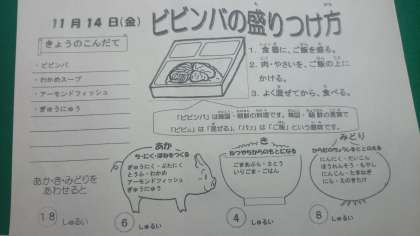 11月14日(金)
ビビンバの盛りつけ方
きょうのこんだて
・ビビンバ
・わかめスープ
・アーモンドフィッシュ
・ぎゅうにゅう
1. 食器に、ご飯を盛る。
2. 肉・やさいを、ご飯の上に
かける。
3. よく混ぜてから、食べる。
「ビビンバ」は韓国・朝鮮の料理です。韓国・朝鮮の言葉で
「ビビン」は「混ぜる」、「バ」は「ご飯」という意味です。
あか・き・みどりを
あわせると
18 しゅるい
あか
ち・にく・ほねをつくる
ぎゅうにく・ぶたにく
とうふ・わかめ
アーモンドフィッシュ
ぎゅうにゅう
6 しゅるい
き
ねつやちからのもとになる
ごまあぶら・さとう
いりごま・ごはん
4 しゅるい
みどり
からだのちょうしをととのえる
にんにく・だいこん
ほうれんそう・もやし
にんじん・たまねぎ
ねぎ・えのきたけ
8 しゅるい